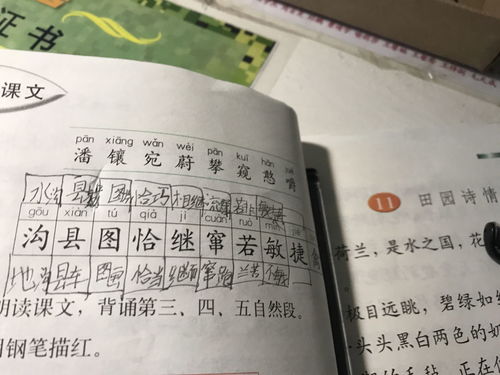 证书
课文
pān xiāng wǎn wèi pān kuī hān
潘 镶 宛 蔚 攀 窥 憨 嚼
水沟 县城 图 恰巧 相继
gōu xiàn tú qià jì cuàn ruò mǐn
沟 县 图 恰 继 窜 若 敏 捷
地沟 县车 图画 恰当 继续 兰若
朗读课文，背诵第三、四、五自然段。
用钢笔描红。
11 田园诗情
荷兰，是水之国，花
极目远眺，碧绿如
一头头黑白两色的奶
正在